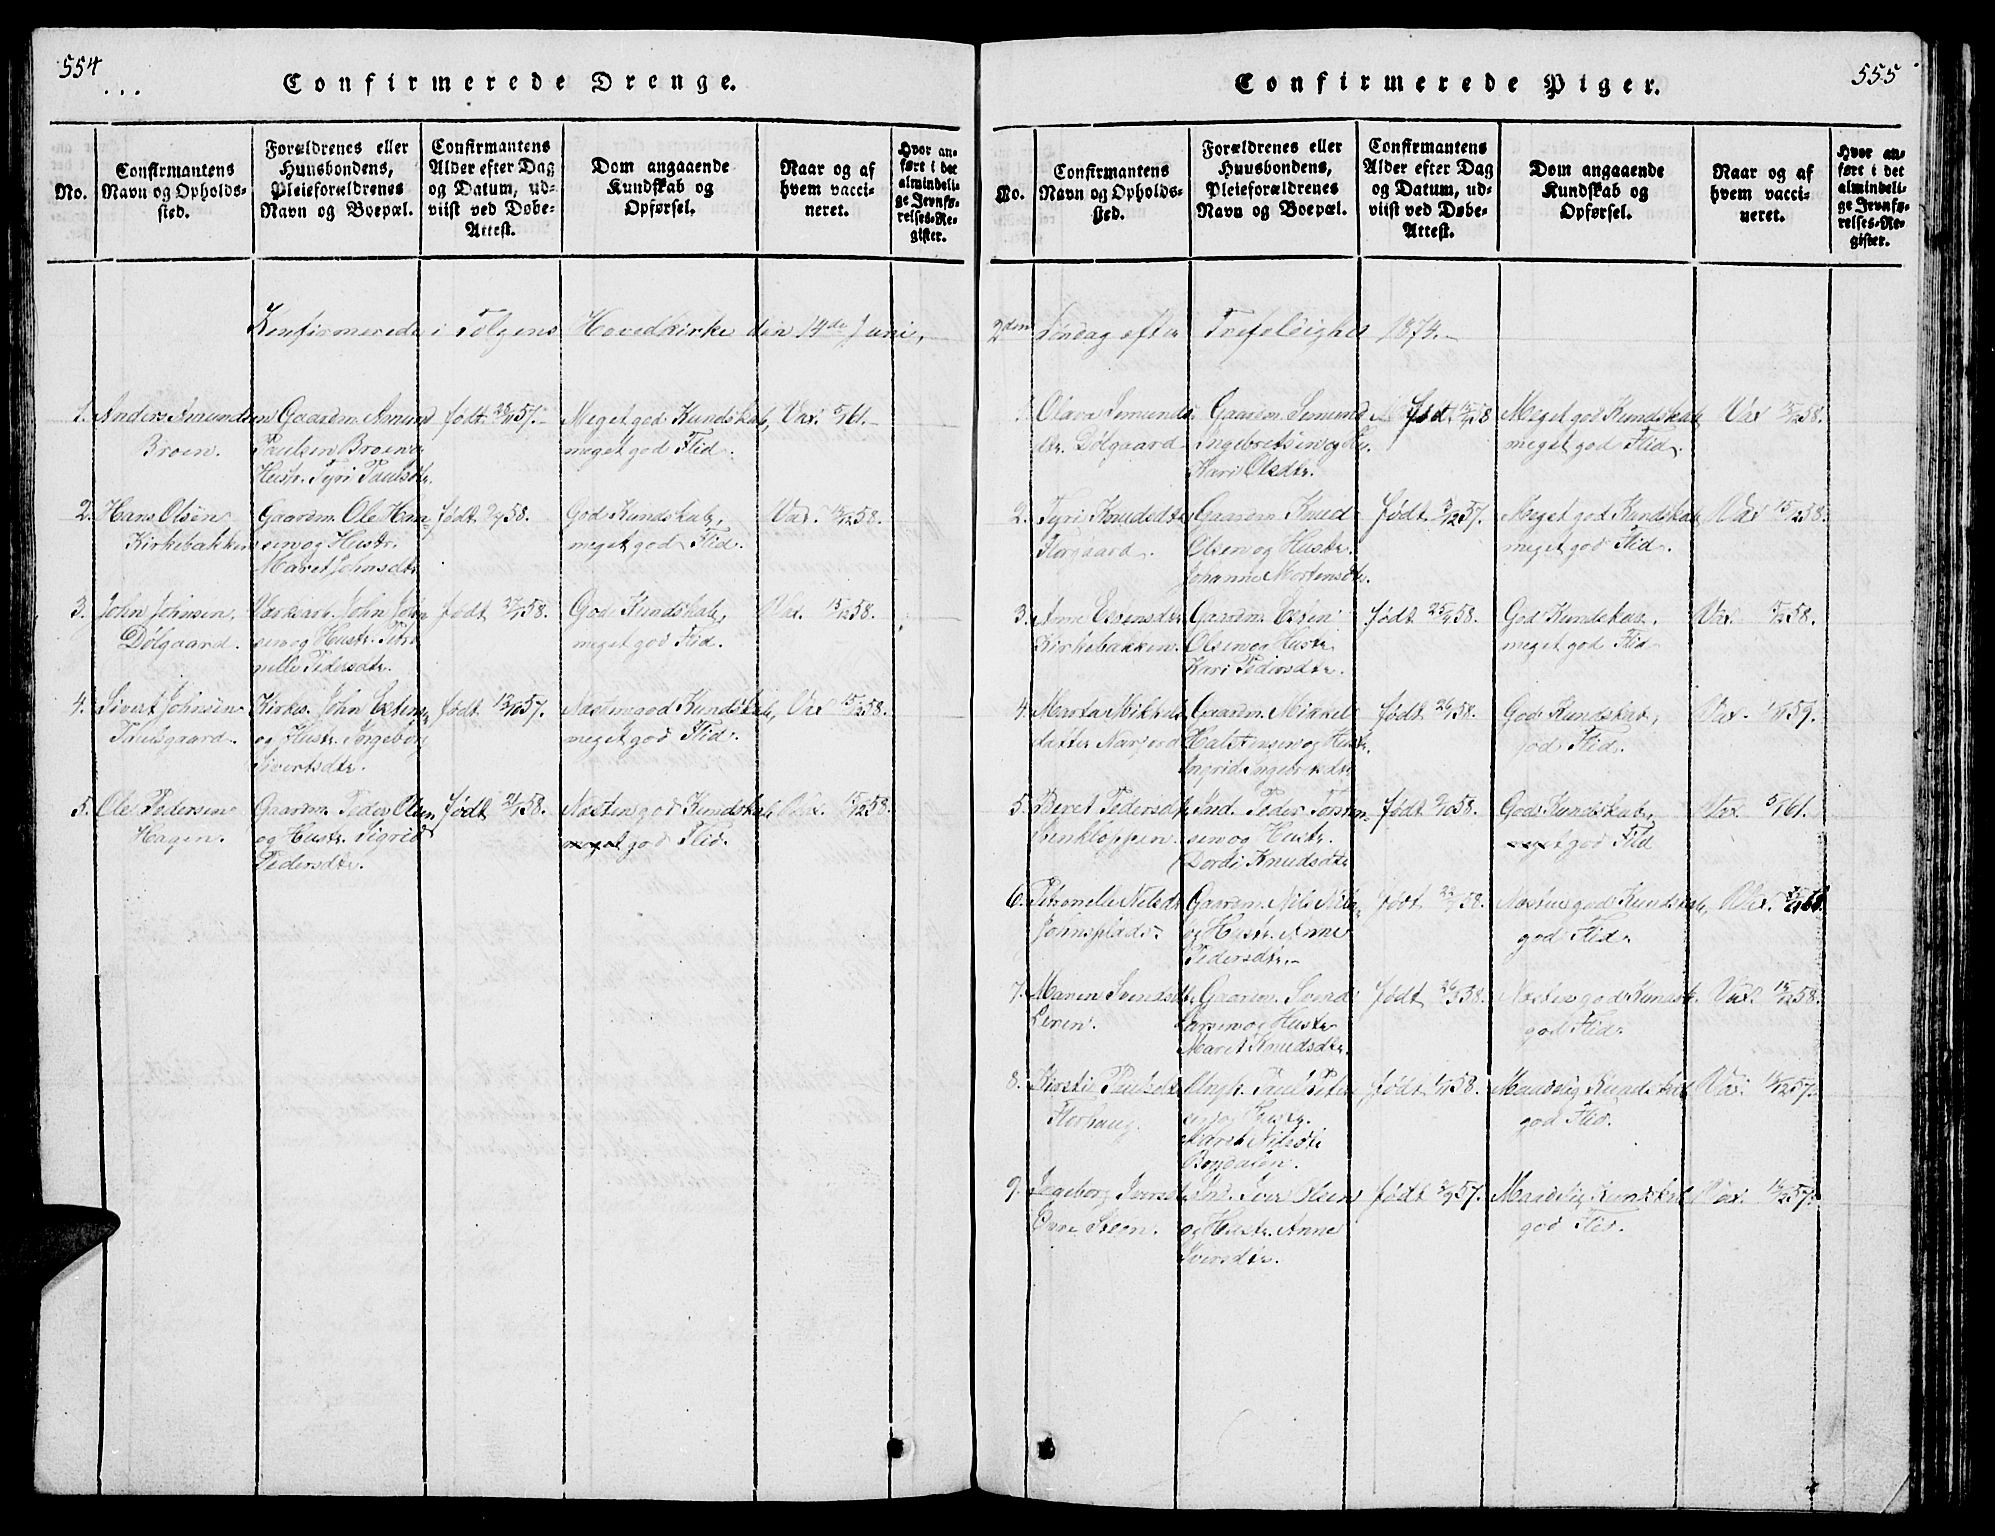 554
...
Confirmerede Drenge.
No.
Confirmantens
Navn og Opholds-
sted.
Forældrenes eller
Huusbondens,
Pleieforældrenes
Navn og Boepæl.
Confirmantens
Alder efter Dag
og Datum, ud-
viist ved Døbe-
Attest.
Dom angaaende
Kundskab og
Opførsel.
Naar og af
hvem vacci-
neret.
Hvor an-
ført i det
almindeli-
ge Jevnfø-
relses-Re-
gister.
Konfirmerede i Tolgens Hovedkirke den 14de Juni,
1. Anders Amundsen
Broen.
Gaardm. Amund
Paulsen Broen og
Hustr. Tyri Paulsdtr.
født 57.
Meget god Kundskab,
meget god Flid.
Vax. 61.
2. Hans Olsen
Kirkebakken
Gaardm. Ole Han-
sen og Hustr.
Maret Johnsdtr.
født 58.
God Kundskab,
meget god Flid.
Vax. 15/12 58.
3. John Johnsen
Dølgaard.
John John
sen og Hustr. Petro
nelle Pedersdtr.
født 58.
God Kundskab,
meget god Flid.
Vax. 15/12 58.
4. Sivert Johnsen
Paulsgaard.
Kirkes. John Esten
og Hustr. Ingeborg
Sivertsdtr.
født 57.
Næsten god Kundskab,
meget god Flid.
Vax 15/12 58.
5. Ole Pedersen
Hagen.
Gaardm. Peder Olsen
og Hustr. Sigrid
Pedersdtr.
født 58.
Næsten god Kundskab,
meget god Flid.
Vax. 15/12 58.
555
Confirmerede Piger.
No.
Confirmantens
Navn og Opholds-
sted.
Forældrenes eller
Huusbondens,
Pleieforældrenes
Navn og Boepæl.
Confirmantens
Alder efter Dag
og Datum, ud-
viist ved Døbe-
Attest.
Dom angaaende
Kundskab og
Opførsel.
Naar og af
hvem vacci-
neret.
Hvor an-
ført i det
almindeli-
ge Jevnfø-
relses-Re-
gister.
2den Søndag efter Trefoldighed 1874.
1. Olava Semunds
dtr. Dølgaard
Gaardm. Semund
Ingebretsen og Hu.
Kari Olsdtr.
født 58
Meget god Kundskab
meget god Flid.
Vax 15/12 58.
2. Tyri Knudsdtr
Gaardm. Knud
Olsen og Hustr.
Johanne Mortensdtr.
født 3/12 57.
Meget god Kundskab
meget god Flid.
Vax 15/12 58.
3. Anne Estensdtr
Kirkebakken.
Gaardm. Esten
Olsen og Hustr
Kari Pedersdtr.
født 58.
God Kundskab,
meget god Flid
Vax. 58.
4. Marta Mikkels
datter Narjord
Gaardm. Mikkel
Halstensen og Hustr.
Ingrid Ingebretsdtr
født 58.
God Kundskab,
god Flid.
Vax. 59.
5. Beret Pedersdtr
Ind. Peder
sen og Hustr.
Dordi Knudsdtr
født 58.
God Kundskab,
meget god Flid
Vax. 61.
6. Petronelle Nilsdtr
Johnsplads.
Gaardm. Nils
og Hustr. Anne
Pedersdtr.
født 58.
Næsten god Kundskab,
god Flid.
Vax.
7. Maren Svendsdtr
Gaardm. Svend
Larsen og Hustr
Maret Knudsdtr.
født 58.
Næsten god Kundsk.
god Flid.
Vax. 15/12 58.
8. Kirsti Paulsdtr
Florhaug.
Paul Peter
sen og
Maret Nilsdtr
født 58.
Maadelig Kundskab
god Flid.
Vax. 57.
9. Ingeborg Iversdtr
Steen.
Ind. Iver Olsen
og Hustr. Anne
Iversdtr.
født 57.
Maadelig Kundskab
god Flid.
Vax. 57.